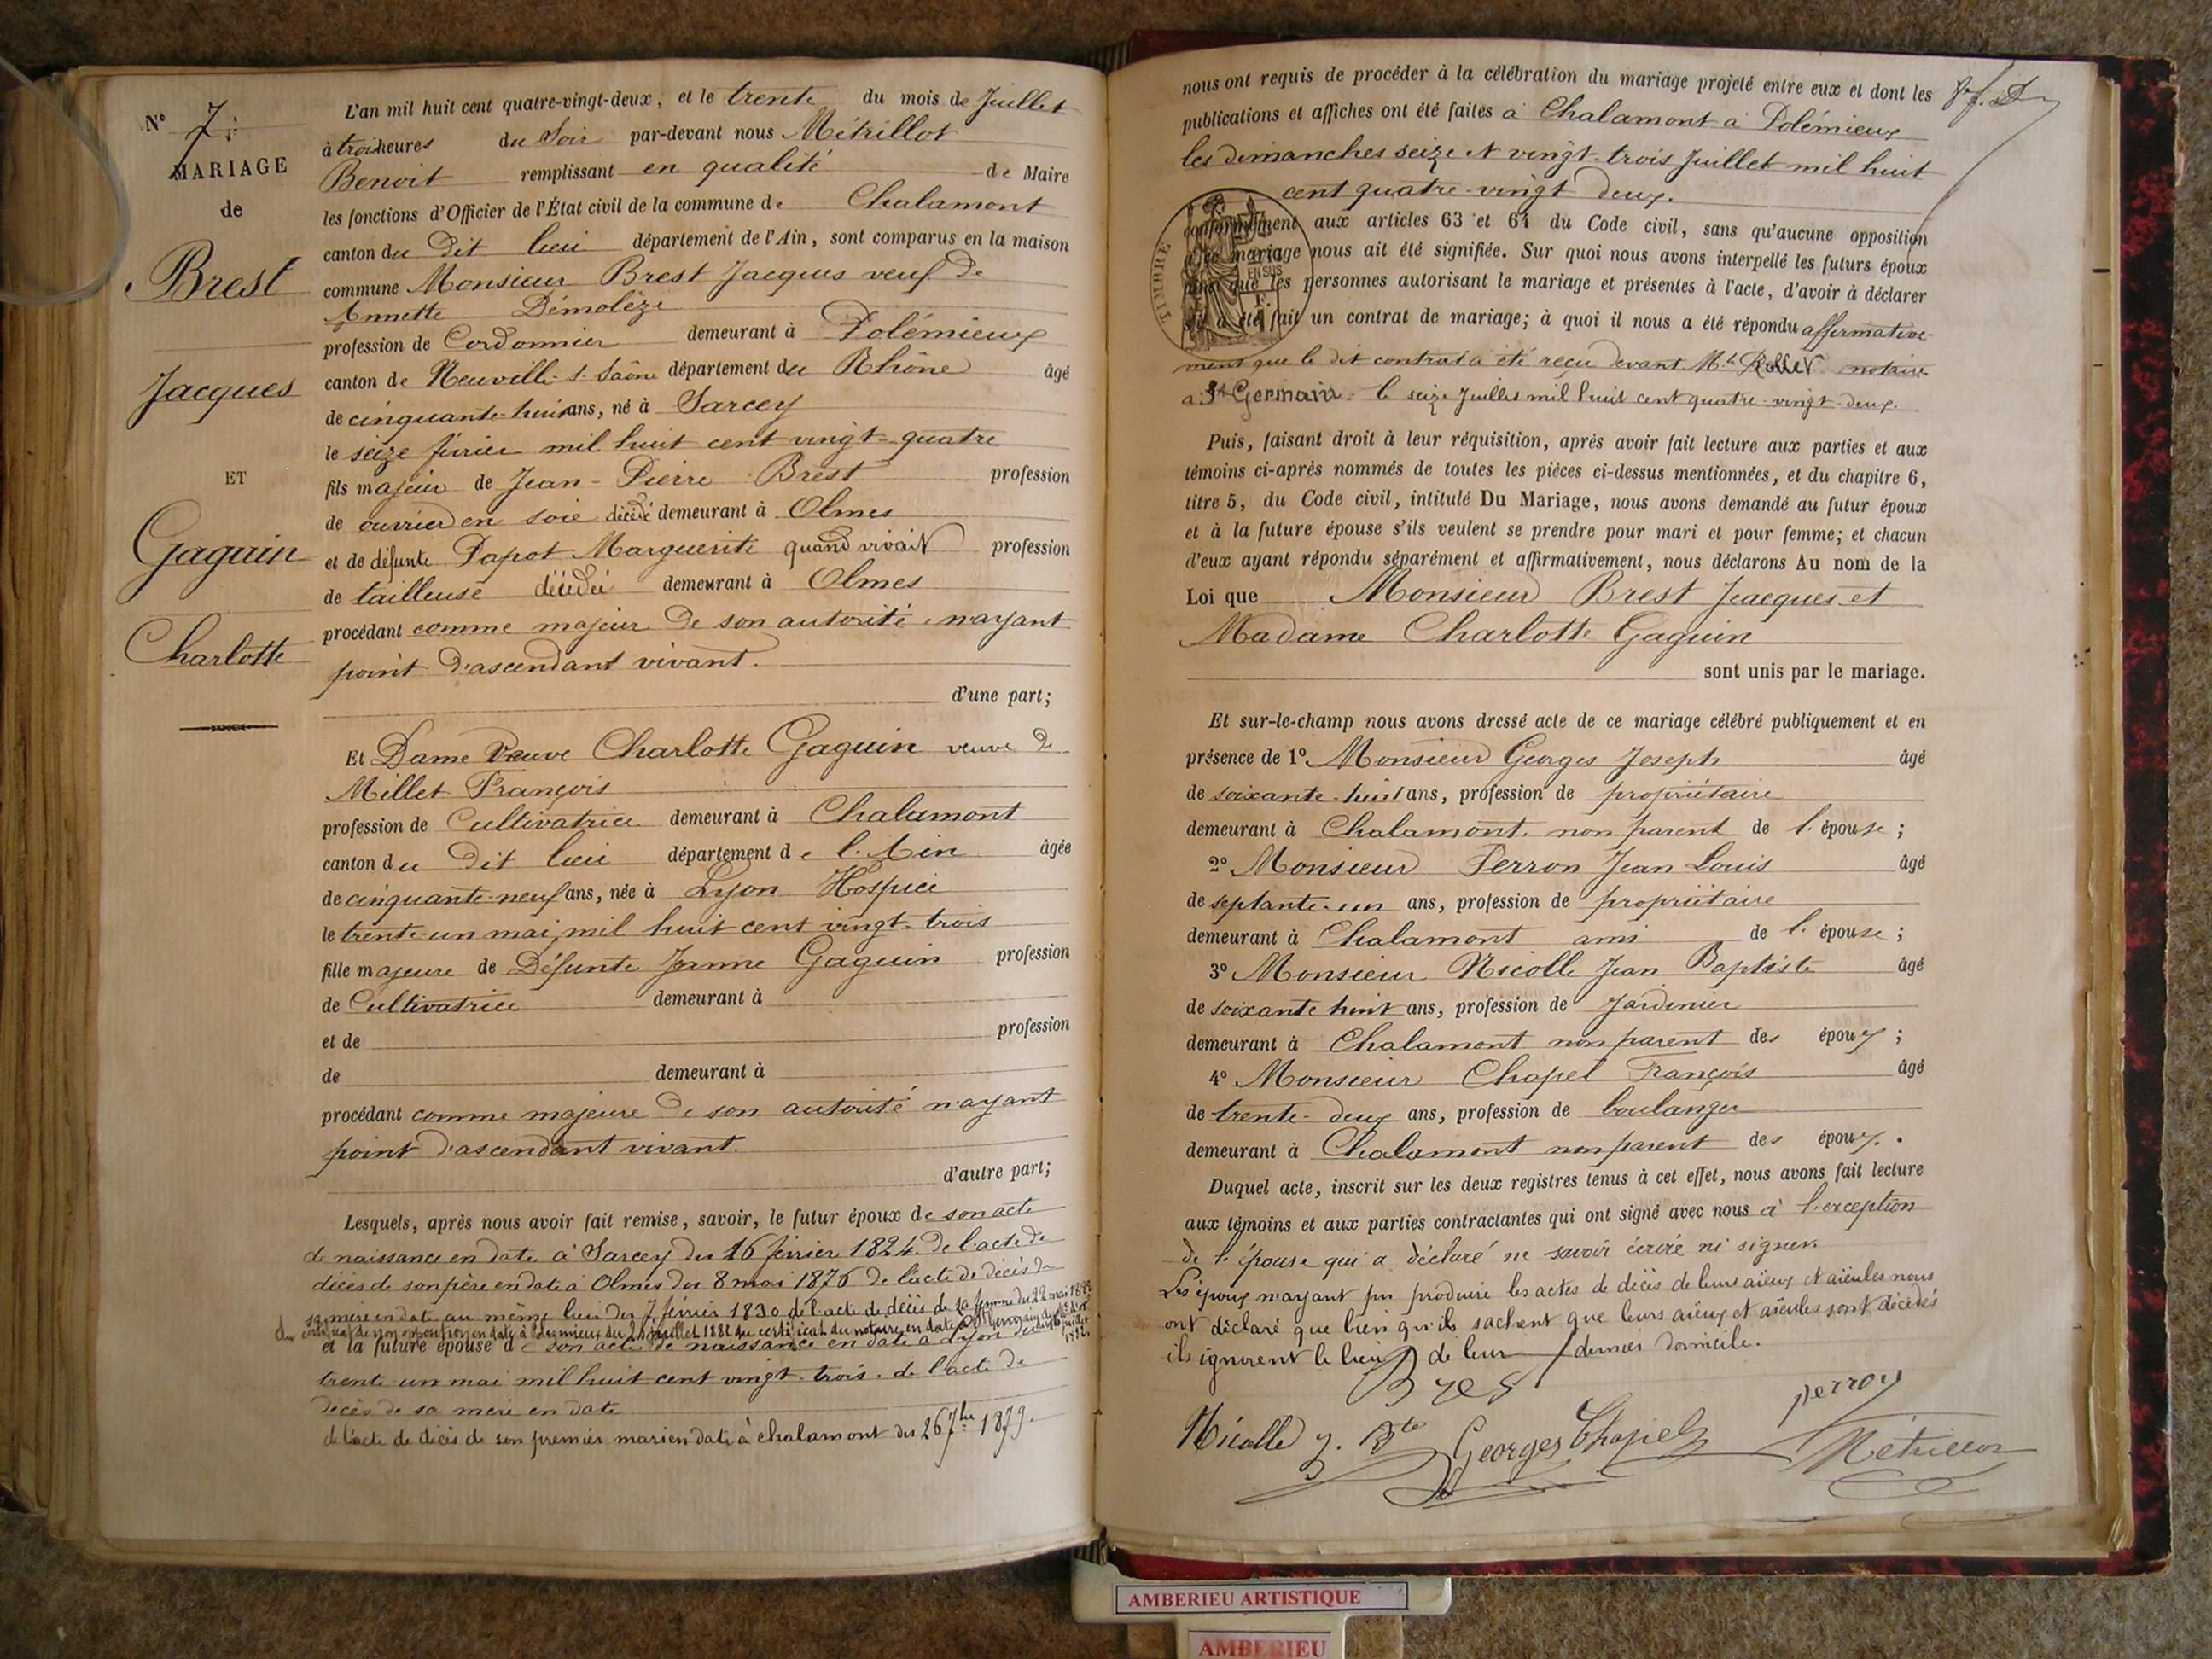 N° 7.
MARIAGE
de
Brest
Jacques
ET
Gaguin
Charlotte
L'an mil huit cent quatre-vingt-deux, et le trente du mois de Juillet
à trois heures du Soir par-devant nous Métrillot
Benoit remplissant en qualité de Maire
les fonctions d'Officier de l'État civil de la commune de Chalamont
canton du Dit lieu département de l'Ain, sont comparus en la maison
commune Monsieur Brest Jacques veuf de
Annette Démolèze
profession de Cordonnier demeurant à Polémieux
canton de Neuville s. Saône département du Rhône âgé
de cinquante-huit ans, né à Sarcey
le seize février mil huit cent vingt-quatre
fils majeur de Jean-Pierre Brest profession
de ouvrier en soie décédé demeurant à Olmes
et de défunte Papot Marguerite quand vivait profession
de tailleuse décédée demeurant à Olmes
procédant comme majeur de son autorité n'ayant
point d'ascendant vivant.
d'une part;
Et Dame Veuve Charlotte Gaguin veuve de
Millet François
profession de Cultivatrice demeurant à Chalamont
canton du Dit lieu département de l'Ain âgée
de cinquante-neuf ans, née à Lyon Hospice
le trente-un mai, mil huit cent vingt-trois
fille majeure de Défunte Jeanne Gaguin profession
de Cultivatrice demeurant à
et de profession
de demeurant à
procédant comme majeure de son autorité n'ayant
point d'ascendant vivant.
d'autre part;
Lesquels, après nous avoir fait remise, savoir, le futur époux de son acte
de naissance en date à Sarcey du 16 février 1824. de l'acte de
décès de son père en date à Olmes du 8 mai 1876 de l'acte de décès de
sa mère en date au même lieu du 7 février 1830 de l'acte de décès de sa femme du 22 mai
du certificat de non opposition en date à Polémieux du Juillet 1882 du certificat du notaire en date à St Germain
et la future épouse de son acte de naissance en date à Lyon du
trente-un mai mil huit cent vingt-trois. de l'acte de
décès de sa mère en date
de l'acte de décès de son premier mari en date à Chalamont du 26 7bre 1879.
nous ont requis de procéder à la célébration du mariage projeté entre eux et dont les
publications et affiches ont été faites à Chalamont à Polémieux
les dimanches seize et vingt-trois Juillet mil huit
cent quatre-vingt deux.
conformément aux articles 63 et 64 du Code civil, sans qu'aucune opposition
à ce mariage nous ait été signifiée. Sur quoi nous avons interpellé les futurs époux
ainsi que les personnes autorisant le mariage et présentes à l'acte, d'avoir à déclarer
s'il a été fait un contrat de mariage; à quoi il nous a été répondu affirmative-
ment que le dit contrat a été reçu devant Me Rollet notaire
à St Germain le seize Juillet mil huit cent quatre-vingt-deux.
TIMBRE
EN SUS
Puis, faisant droit à leur réquisition, après avoir fait lecture aux parties et aux
témoins ci-après nommés de toutes les pièces ci-dessus mentionnées, et du chapitre 6,
titre 5, du Code civil, intitulé Du Mariage, nous avons demandé au futur époux
et à la future épouse s'ils veulent se prendre pour mari et pour femme; et chacun
d'eux ayant répondu séparément et affirmativement, nous déclarons Au nom de la
Loi que Monsieur Brest Jacques et
Madame Charlotte Gaguin
sont unis par le mariage.
Et sur-le-champ nous avons dressé acte de ce mariage célébré publiquement et en
présence de 1° Monsieur Georges Joseph âgé
de soixante-huit ans, profession de propriétaire
demeurant à Chalamont non parent de l'épouse;
2° Monsieur Perron Jean Louis âgé
de septante-un ans, profession de propriétaire
demeurant à Chalamont ami de l'épouse;
3° Monsieur Nicolle Jean Baptiste âgé
de soixante huit ans, profession de Jardinier
demeurant à Chalamont non parent des époux;
4° Monsieur Chapel François âgé
de trente-deux ans, profession de boulanger
demeurant à Chalamont non parent des époux.
Duquel acte, inscrit sur les deux registres tenus à cet effet, nous avons fait lecture
aux témoins et aux parties contractantes qui ont signé avec nous à l'exception
de l'épouse qui a déclaré ne savoir écrire ni signer.
Les époux n'ayant pu produire les actes de décès de leurs aïeux et aïeules nous
ont déclaré que bien qu'ils sachent que leurs aïeux et aïeules sont décédés
ils ignorent le lieu de leur dernier domicile.
Brest
perron
Nicolle J. Bte Georges Chapel Métrillot
AMBERIEU ARTISTIQUE
AMBERIEU